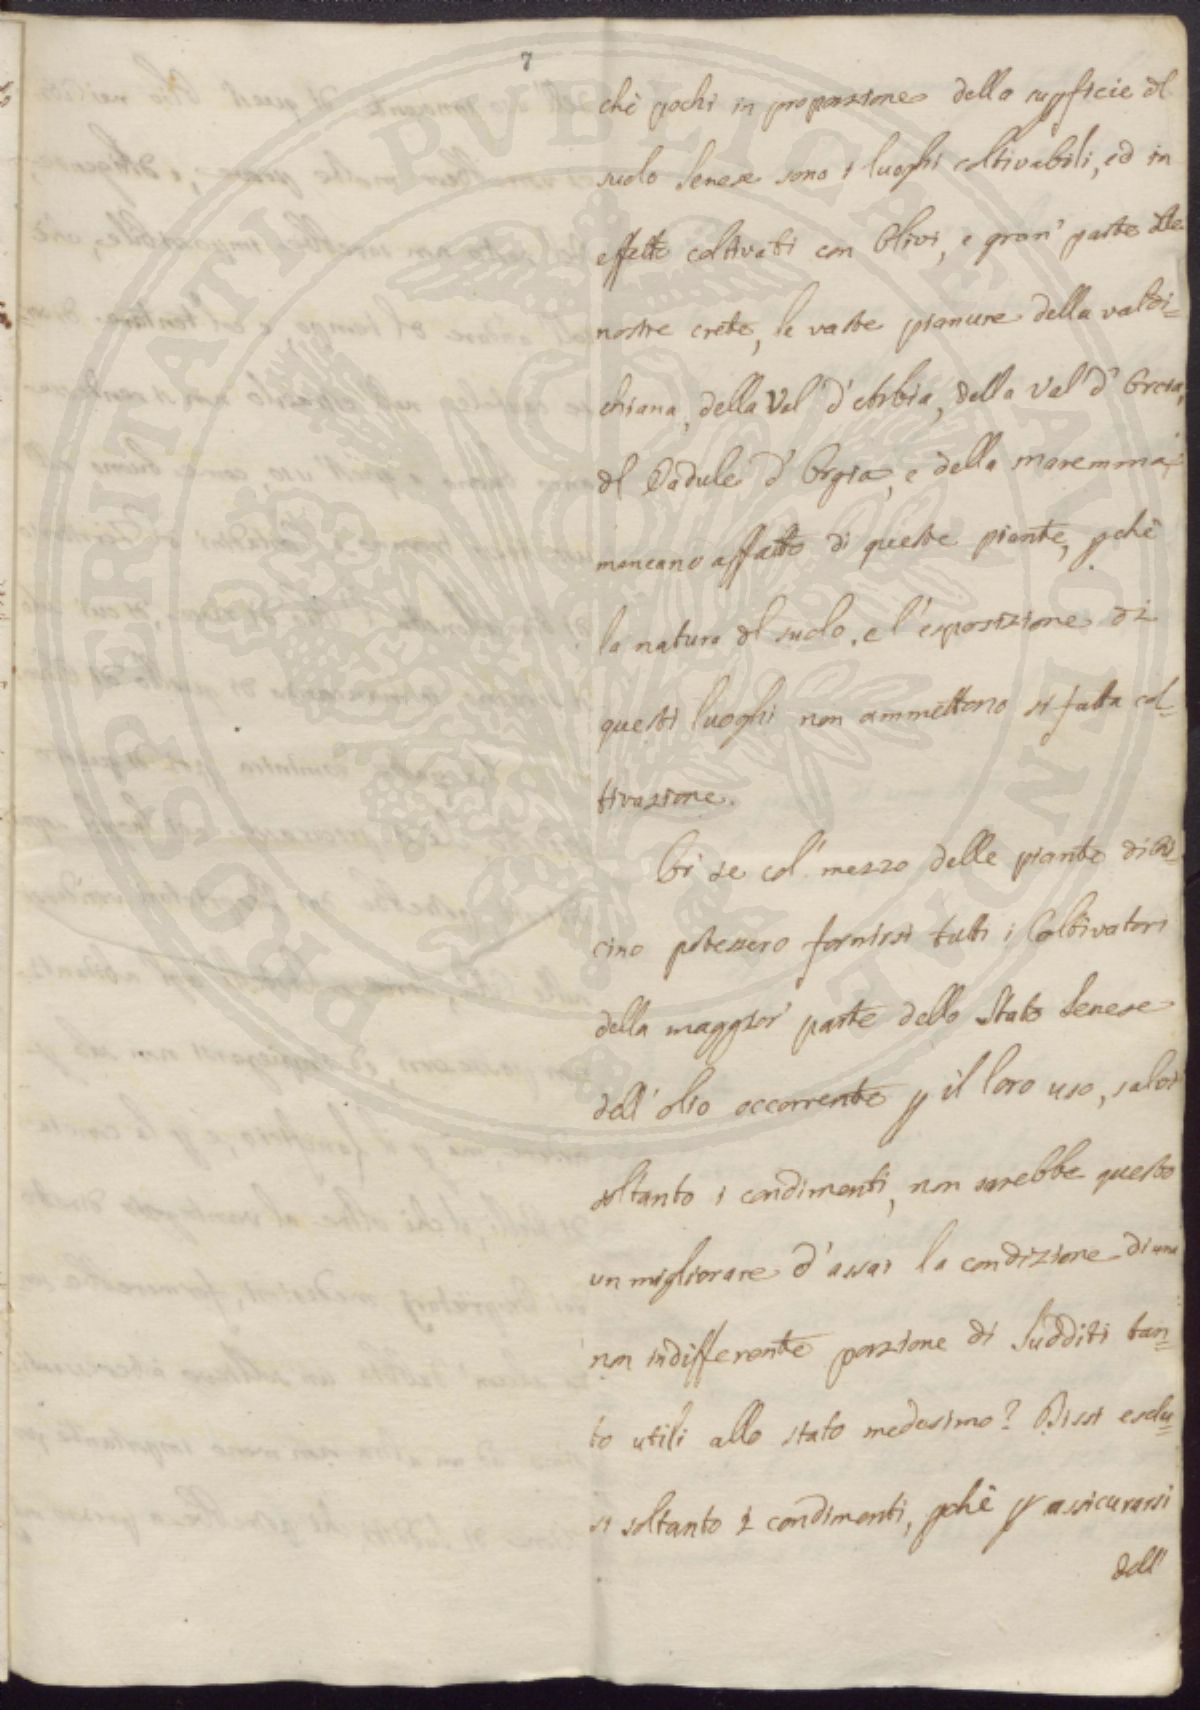 7
chè pochi in proporzione della supficie dl
suolo Senese sono i luoghi coltivabili, ed in
effetto coltivati con Olivi, e gran' parte dlle
nostre crete, le vaste pianure della valdi=
chiana, della Val' d'Arbia, della Val' d'Orcia,
dl Padule d'Orgia, e della maremma
mancano affatto di queste piante, pchè
la natura dl suolo, e l'esposizione di
questi luoghi non ammettono sì fatta col=
tivazione.
Or se col' mezzo delle piante di Ri=
cino potessero fornirsi tutti i Coltivatori
della maggior' parte dello Stato Senese
dell'olio occorrente p il loro uso, salvi
soltanto i condimenti, non sarebbe questo
un migliorare d'assai la condizione di una
non indifferente porzione di Sudditi tan=
to utili allo stato medesimo? Dissi esclu=
si soltanto i condimenti, pchè p assicurarsi
dell'
PROSPERITATI PVBLICAE AVGENDAE